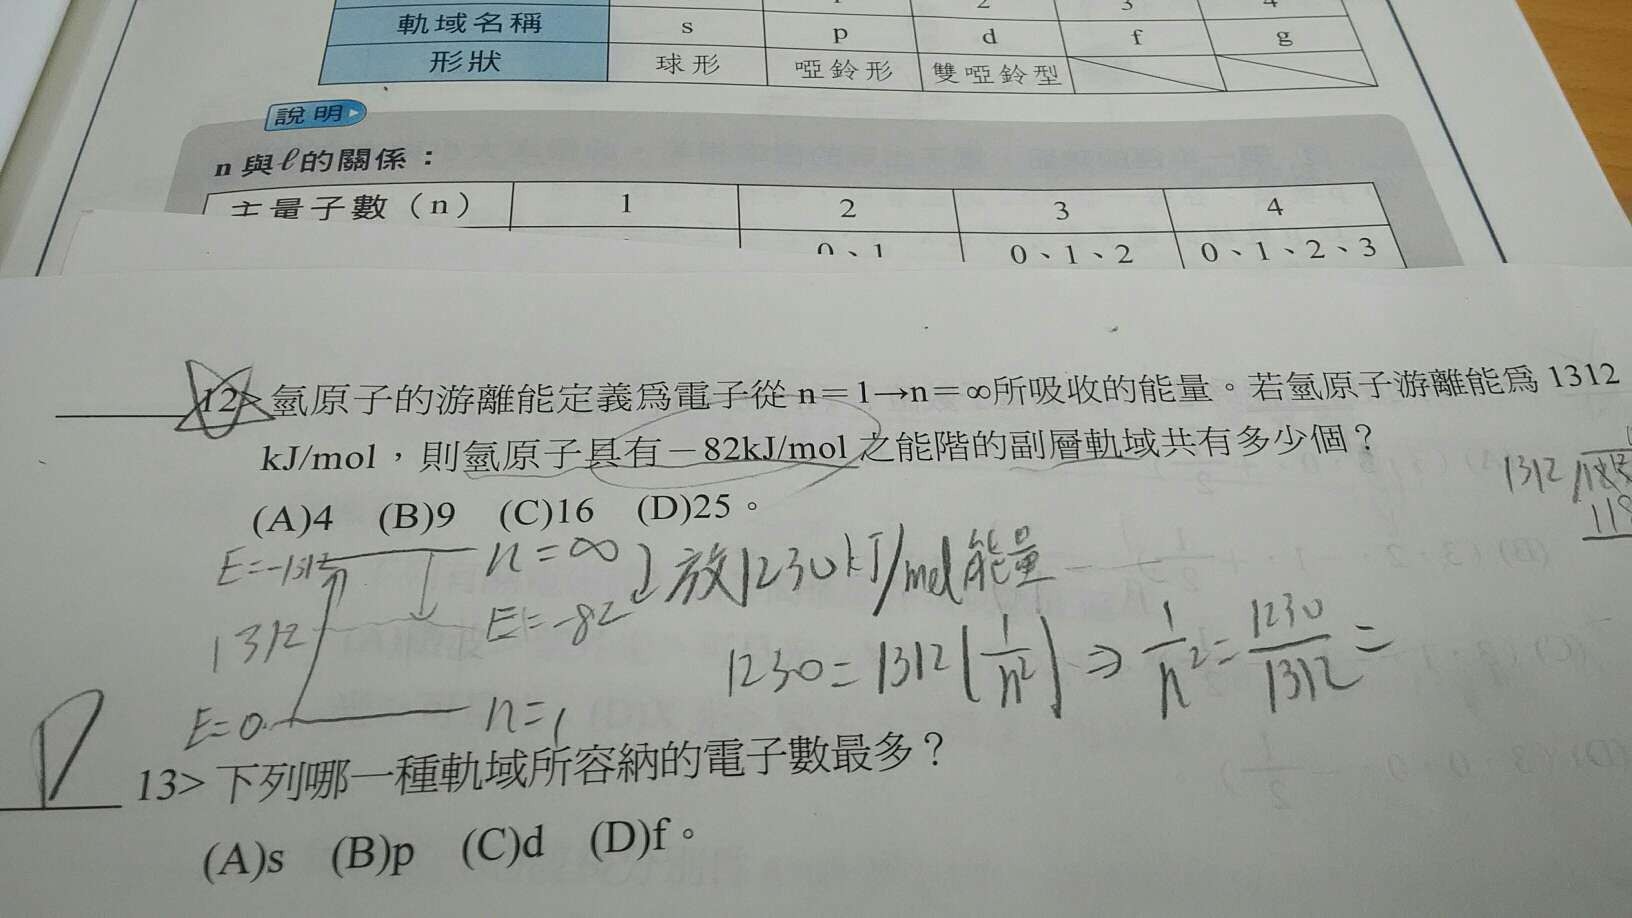 1 2 3 4
軌域名稱 s p d f g
形狀 球形 啞鈴形 雙啞鈴型
說明
n與ℓ的關係：
主量子數（n） 1 2 3 4
0、1 0、1、2 0、1、2、3
12> 氫原子的游離能定義為電子從 n＝1→n＝∞所吸收的能量。若氫原子游離能為 1312
kJ/mol，則氫原子具有－82kJ/mol 之能階的副層軌域共有多少個？
(A)4 (B)9 (C)16 (D)25。
1312
E=-1312 n=∞ 放1230kJ/mol能量
1312 E=-82
1230=1312(1/n²) ⇒ 1/n²=1230/1312=
E=0 n=1
D 13> 下列哪一種軌域所容納的電子數最多？
(A)s (B)p (C)d (D)f。